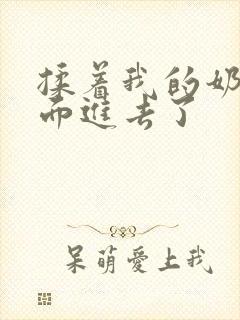 揉着我的奶
而進去了
呆萌愛上我